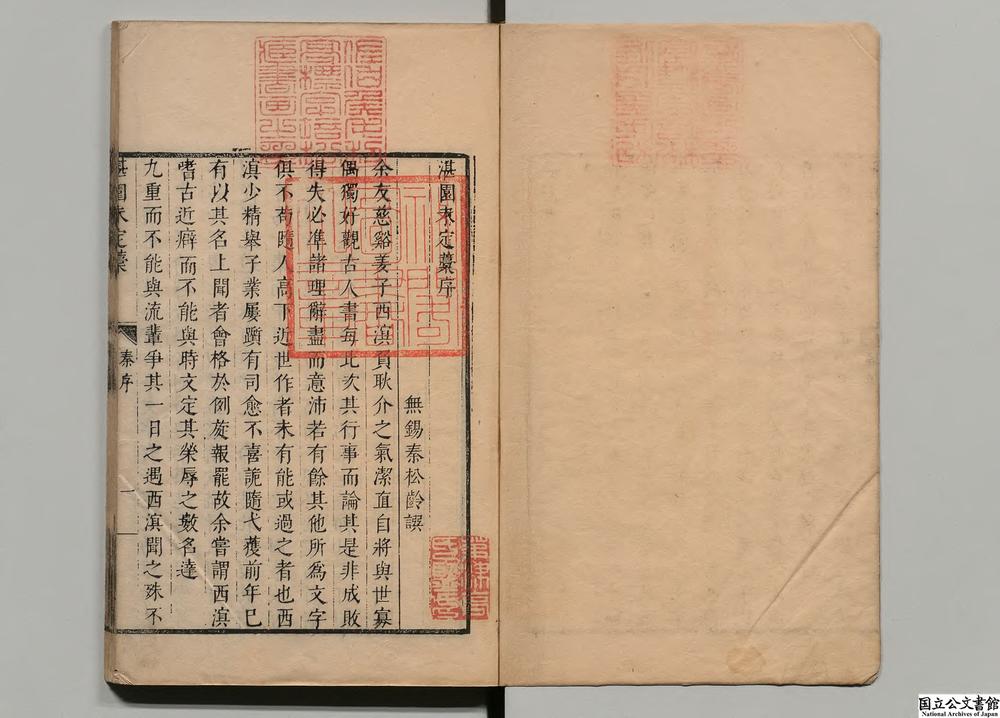 湛園未定藁序
無錫秦松齡譔
余友慈谿姜子西溟負耿介之氣潔直自將與世寡
偶獨好觀古人書每比次其行事而論其是非成敗
得失必準諸理辭盡而意沛若有餘其他所爲文字
俱不苟隨人高下近世作者未有能或過之者也西
溟少精舉子業屢躓有司愈不喜詭隨弋獲前年已
有以其名上聞者會格於例旋報罷故余嘗謂西溟
嗜古近癖而不能與時文定其榮辱之數名達
九重而不能與流輩爭其一日之遇西溟聞之殊不
湛園未定藁
秦序
一
国立公文書館
National Archives of Japan